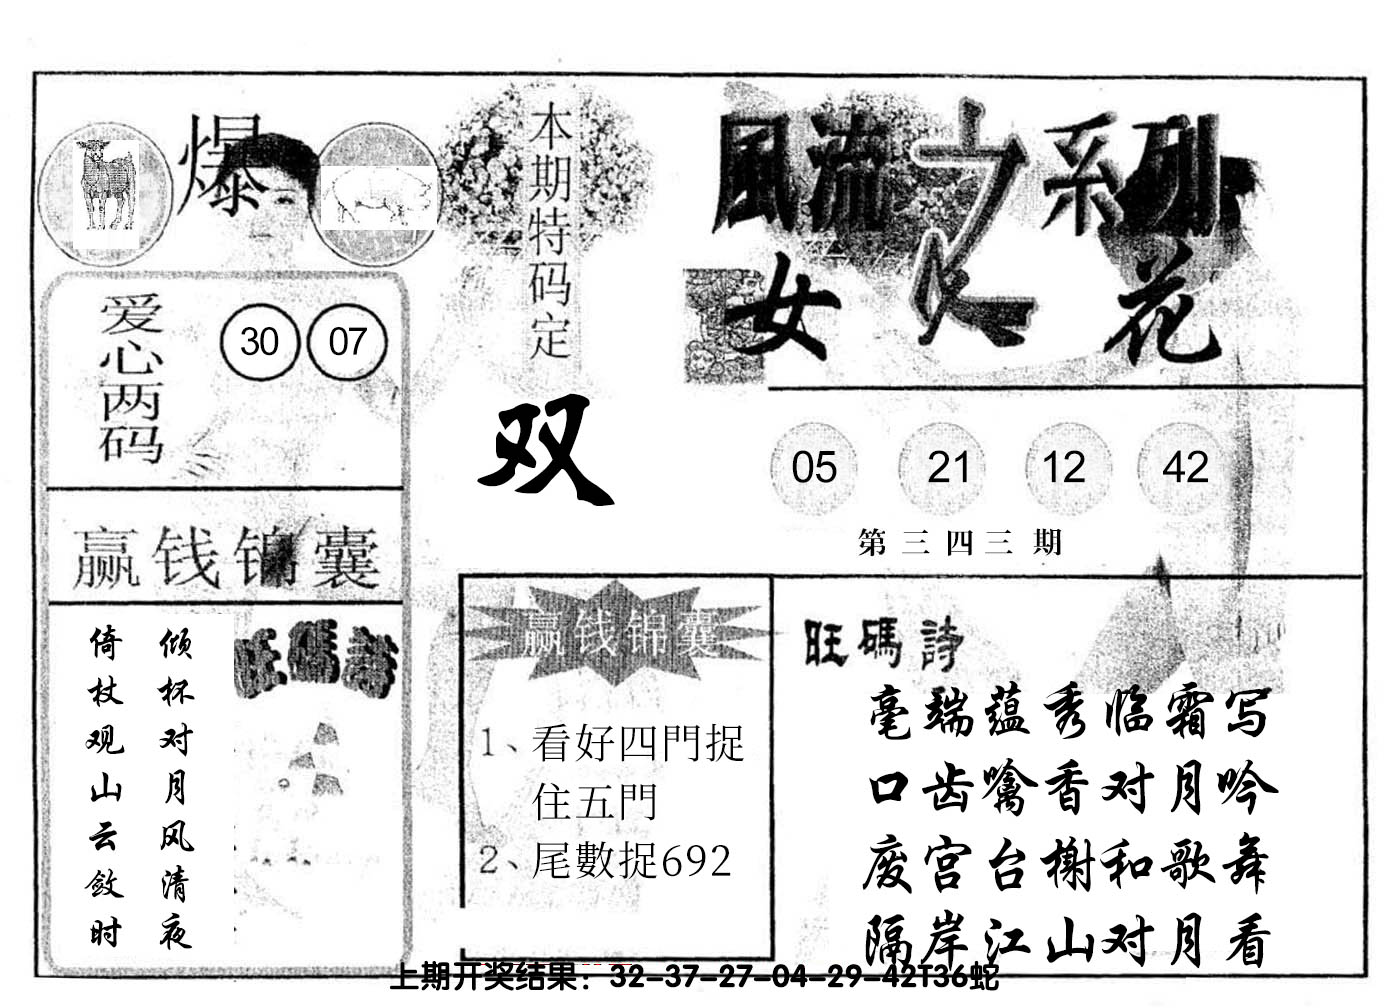 爆
本期特码定
双
風流之系列
女人花
爱心两码
30 07
05 21 12 42
第三四三期
赢钱锦囊
倾杯对月风清夜
倚杖观山云敛时
旺碼詩
赢钱锦囊
1、看好四門捉
住五門
2、尾數捉692
旺碼詩
毫端蕴秀临霜写
口齿噙香对月吟
废宫台榭和歌舞
隔岸江山对月看
上期开奖结果：32-37-27-04-29-42T36蛇